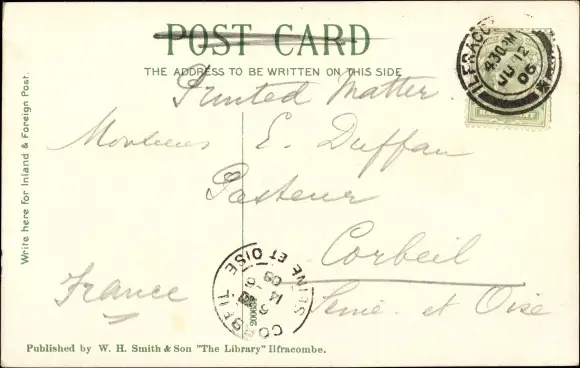 POST CARD
THE ADDRESS TO BE WRITTEN ON THIS SIDE
Printed Matter
Monsieur E. Duffau
Pasteur
Corbeil
Seine et Oise
France
Write here for Inland & Foreign Post.
ILFRACOMBE
4.30 PM
JU 12
05
CORBEIL
SEINE ET OISE
14 -6
Published by W. H. Smith & Son "The Library" Ilfracombe.